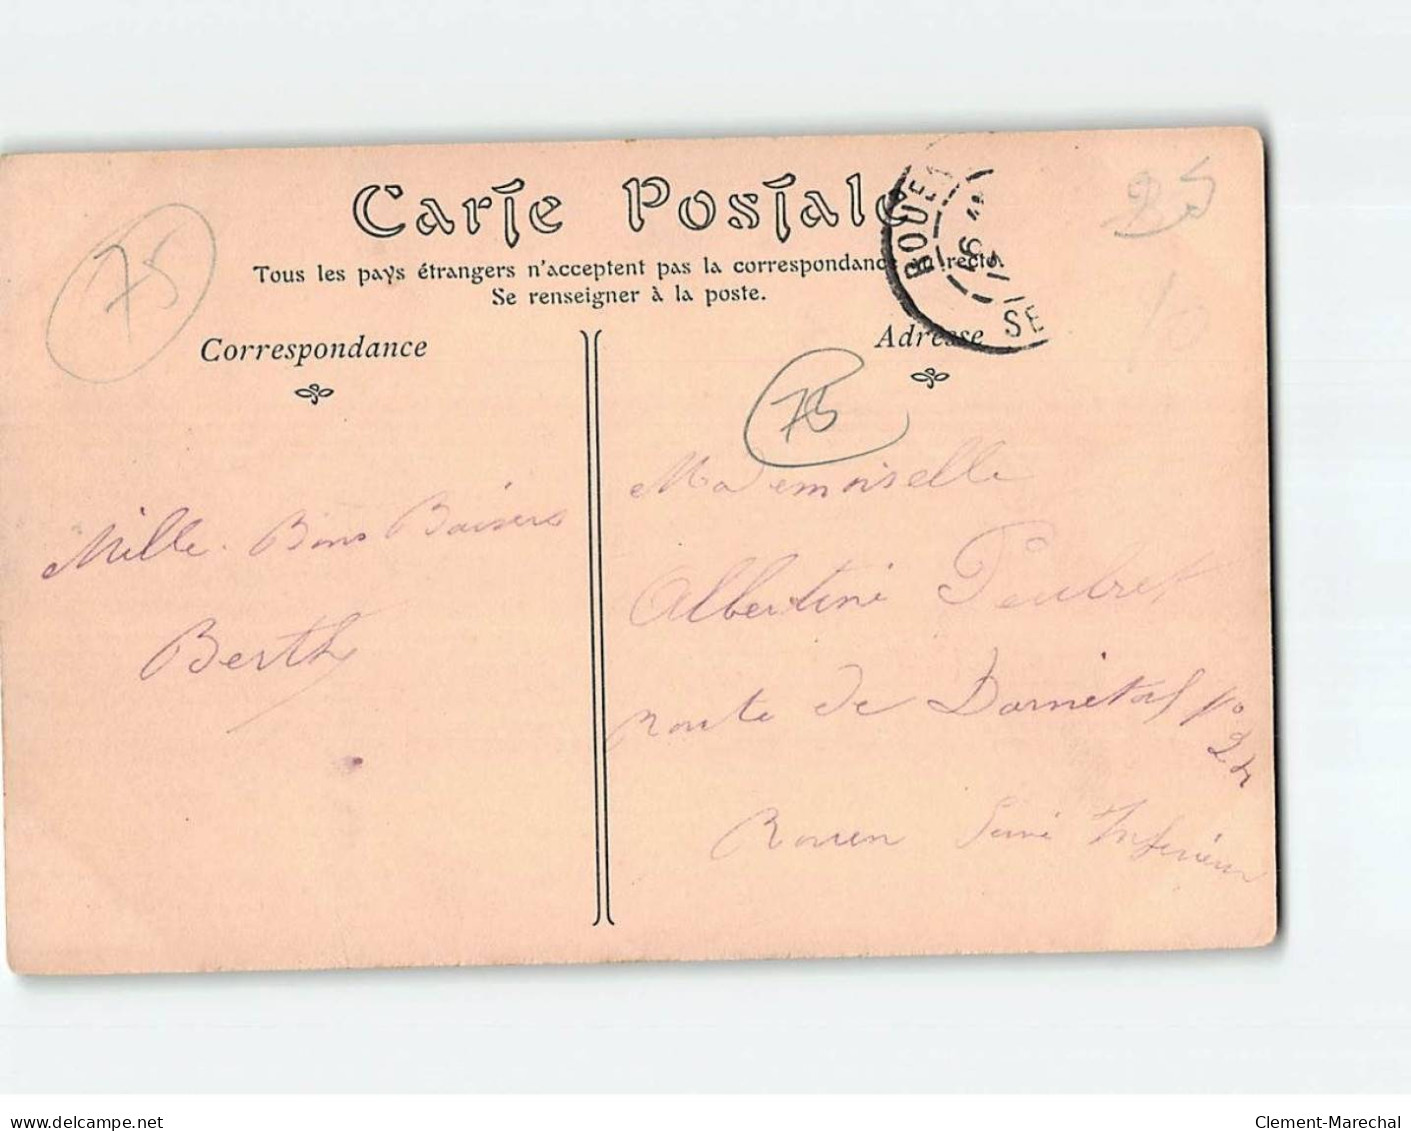 Carte Postale
Tous les pays étrangers n'acceptent pas la correspondance
Se renseigner à la poste.
Correspondance
Adresse
ROUEN
SE
75
75
25
Mille Bons Baisers
Berthe
Mademoiselle
Albertine
Route de Darnétal No
24
Rouen Seine Inférieure
delcampe.net
Clement-Marechal